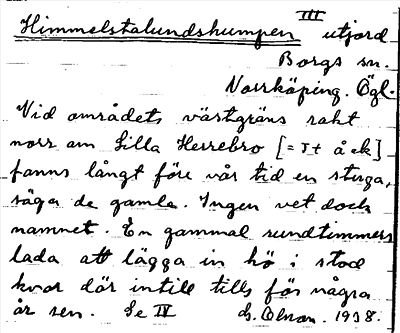 Himmelstalundshumpen III utjord
Borgs sn.
Norrköping. Ögl.
Vid områdets västgräns rakt
norr om Lilla Herrebro [= It åck]
fanns långt före vår tid en stuga,
säga de gamla. Ingen vet dock
namnet. En gammal rundtimmers
lada att lägga in hö i stod
kvar där intill tills för några
år sen. Se IV G. Olson. 1938.